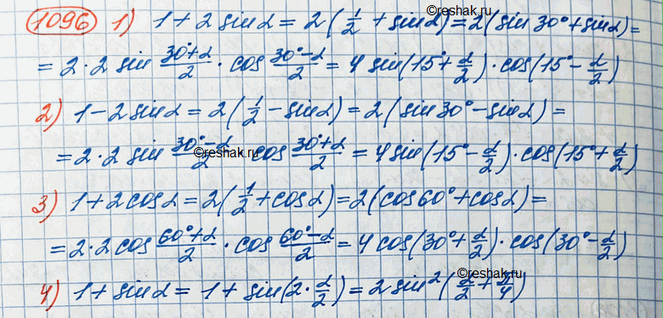 1096 1) 1 + 2 sin α = 2(1/2 + sin α) = 2(sin 30° + sin α) =
= 2·2 sin (30°+α)/2 · cos (30°-α)/2 = 4 sin(15° + α/2) · cos(15° - α/2)
2) 1 - 2 sin α = 2(1/2 - sin α) = 2(sin 30° - sin α) =
= 2·2 sin (30°-α)/2 cos (30°+α)/2 = 4 sin(15° - α/2) · cos(15° + α/2)
3) 1 + 2 cos α = 2(1/2 + cos α) = 2(cos 60° + cos α) =
= 2·2 cos (60°+α)/2 · cos (60°-α)/2 = 4 cos(30° + α/2) · cos(30° - α/2)
4) 1 + sin α = 1 + sin(2·α/2) = 2 sin²(α/2 + π/4)
©reshak.ru
©reshak.ru
©reshak.ru
©reshak.ru